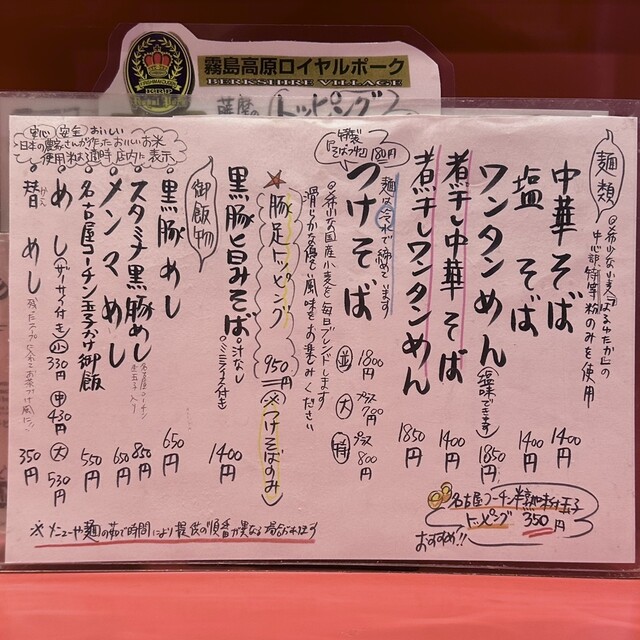 霧島高原ロイヤルポーク
BERKSHIRE VILLAGE
KRP
薩摩の
トッピング
麺類
◎希少な小麦「はるゆたか」の
中心部、特等粉のみを使用
中華そば 1400円
塩そば 1400円
ワンタンめん（塩味できます） 1850円
煮干し中華そば 1400円
煮干しワンタンめん 1850円
特製
「そばつゆ」 180円
つけそば
麺は冷水で締めています
並 1800円
大 プラス700円
特 プラス800円
◎希少な国産小麦を毎日ブレンドします
滑らかな優しい風味をお楽しみください
豚足トッピング 950円（※つけそばのみ）
黒豚旨みそば ◎汁なし
◎ミニライス付き 1400円
御飯物
安心 安全 おいしい
日本の農家さんが作ったおいしいお米
使用 米は適時 店内に表示
黒豚めし 650円
スタミナ黒豚めし 名古屋コーチン
玉子入り 850円
メンマめし 650円
名古屋コーチン玉子かけ御飯 550円
めし（ザーサイ付き） 小 330円 中 430円 大 530円
替めし 350円
名古屋コーチン半熟味付玉子
トッピング 350円
おすすめ!!
※メニューや麺の茹で時間により提供の順番が異なる場合があります